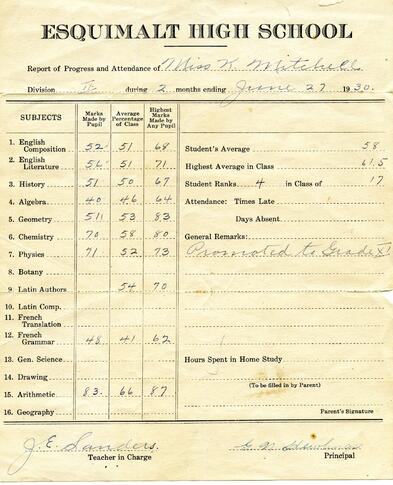 ESQUIMALT HIGH SCHOOL
Report of Progress and Attendance of Miss K. Mitchell
Division II during 2 months ending June 27 1930.
SUBJECTS Marks Made by Pupil Average Percentage of Class Highest Marks Made by Any Pupil
1. English Composition 52 51 68 Student's Average 58
2. English Literature 56 51 71 Highest Average in Class 61.5
3. History 51 50 67 Student Ranks 4 in Class of 17
4. Algebra 40 46 64 Attendance: Times Late
5. Geometry 53 83 Days Absent
6. Chemistry 70 58 80 General Remarks:
7. Physics 71 52 73 Promoted to Grade XI
8. Botany
9 Latin Authors 54 70
10. Latin Comp.
11. French Translation
12. French Grammar 48 41 62
13. Gen. Science Hours Spent in Home Study
14. Drawing (To be filled in by Parent)
15. Arithmetic 83. 66 87
16. Geography Parent's Signature
J. E. Sanders.
Teacher in Charge Principal